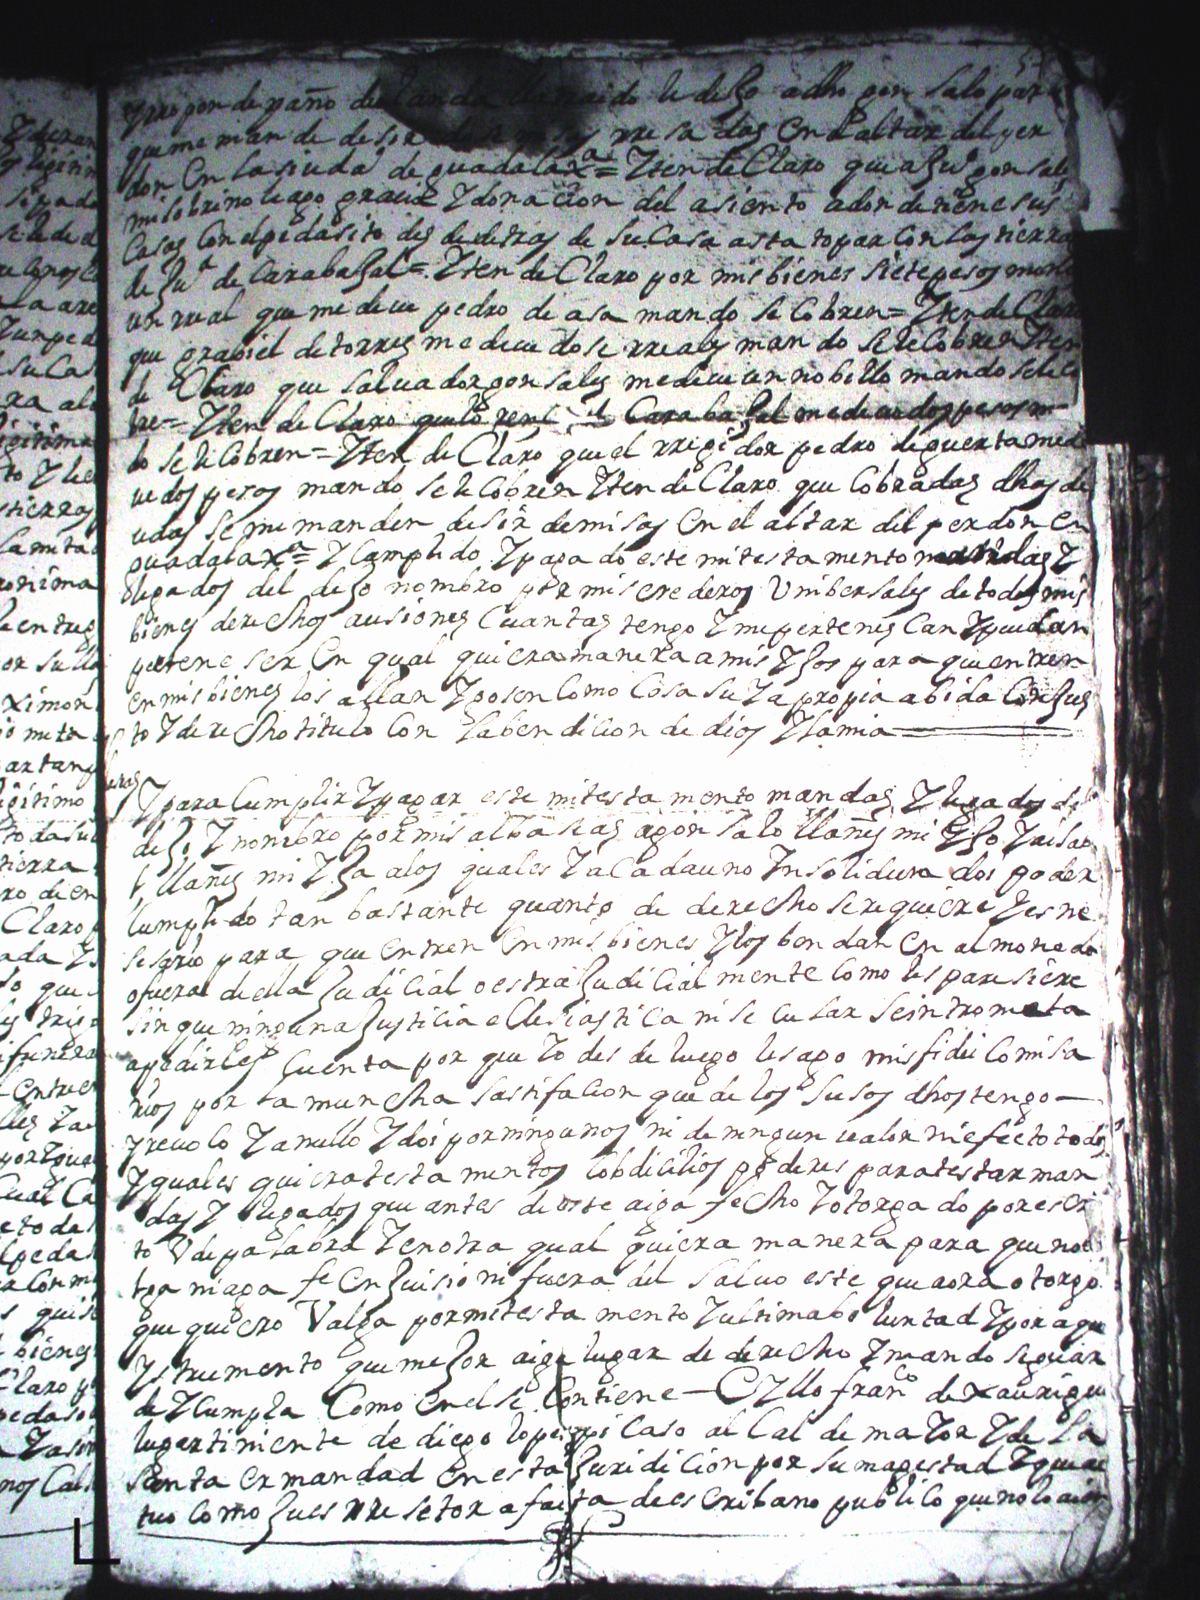 de paño de le deJo adho gonSalo para
que me man de desir rre sa das en el altar del per
don en la siuda de guadalaxa = Yten de Claro que a Ju° gonsales
mi sobrino le ago gracia Y dona cion del a siento a don de tiene sus
Casas Con el pedasito de detras de su casa asta topar Con las tierras
de Ju° de CarabaJal = Yten de Claro por mis bienes siete pesos menos
un rreal que me deue pedro de asa mando se Cobren = Yten de Claro
que grabiel de torres me deue dose rreales mando se le Cobren Yten
de Claro que saluador gonsales me deue un nobillo mando se le co
bre = Yten de Claro que CarabaJal me deue dos pesos man
do se le Cobren = Yten de Claro que el rregidor pedro de guerta me de
ue dos pesos mando se le Cobren Yten de Claro que Cobradas dhas de
udas se me manden desir de misas en el altar del perdon en
guadalaxa = Y Cumplido Y paga do este mi testa mento mandas Y
legados del deJo nombro por mis erederos Unibersales de todos mis
bienes derechos ausiones Cuantas tengo Y me pertenes Can Y puedan
pertene ser en qual quiera manera a mis YJos para que entren
en mis bienes los allan Y gosen Como Cosa suYa propia abida Con Jus
to Y derecho titulo Con la bendicion de dios Y la mia
Y para Cumplir Y pagar este mi testa mento mandas Y legados del
deJo Y nombro por mis albaseas a gonsalo llañes mi YJo Y a isabe
l llañes mi YJa a los quales Y a Cada uno Ynsolidum doi poder
Cumplido tan bastante quanto de derecho se requiere Y es ne
sesario para que entren en mis bienes Y los bendan en almoneda
o fuera de ella Judicial o estraJudicial mente Como les paresiere
sin que ninguna Justicia eClesiastica ni se cular se intrometa
a pedirles Cuenta por que Yo des de luego les ago mis fidei Comisa
rios por la muncha sastifacion que de los susos dhos tengo
Y reuoCo Y anullo Y doi por ningunos ni de ningun ualor ni efecto todos
Y quales quiera testa mentos Cobdicilios poderes para testar man
das Y legados que antes de este aiga fecho Y otorgado por escri
to Y de palabra Y en otra qual quiera manera para que no
ni aga fe en Juisio ni fuera del saluo este que aora otorgo
que quiero Valga por mi testa mento Y ultima boluntad Y por aquel
Ystrumento que meJor aiga lugar de derecho Y mando se guar
de Y Cumpla Como en el se Contiene — E Yo franco de xauregui
lugartiniente de diego lopes al Cal de maYor Y de la
santa ermandad en esta Juridicion por su magestad Y que ac
tuo Como Jues rre setor a falta de escribano publico que no lo ai en